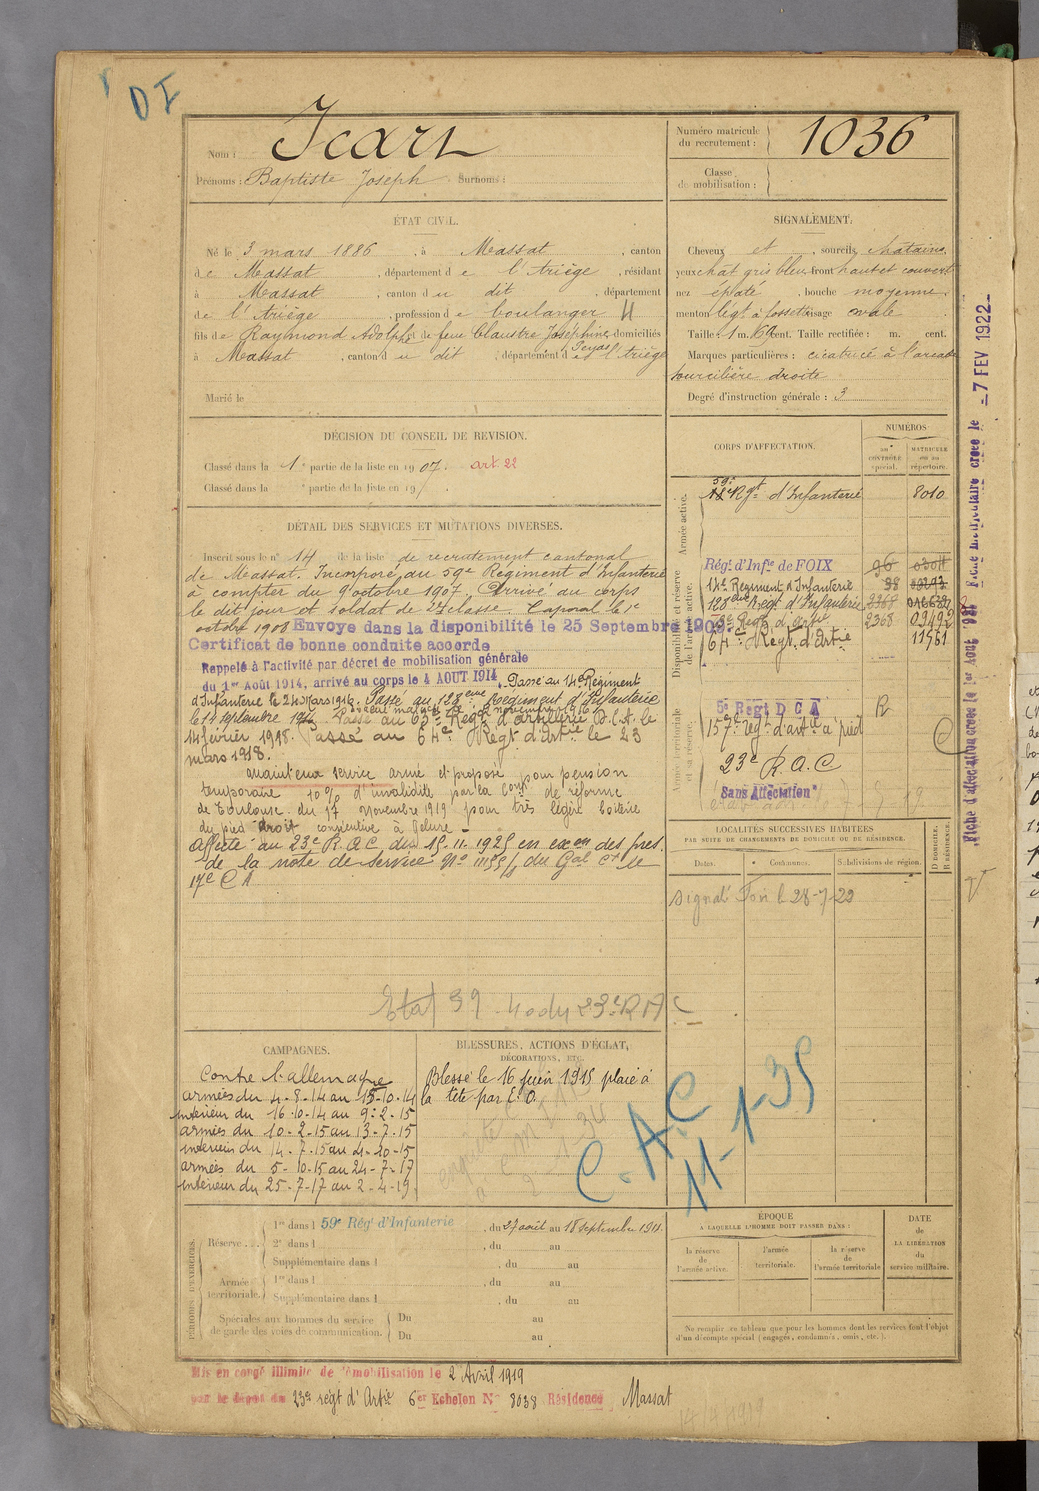 DI
Nom : Icart
Prénoms : Baptiste Joseph Surnoms :
Numéro matricule du recrutement : 1036
Classe de mobilisation :
ÉTAT CIVIL.
Né le 3 mars 1886, à Massat, canton
de Massat, département de l'Ariège, résidant
à Massat, canton du dit, département
de l'Ariège, profession de boulanger H
fils de Raymond Adolphe et de feue Claustre Joséphine domiciliés
à Massat, canton du dit, département de l'Ariège
Marié le
SIGNALEMENT.
Cheveux et, sourcils chatains
yeux chat gris bleu, front haut et couvert
nez épaté, bouche moyenne
menton légt à fossette visage ovale
Taille : 1 m. 69 cent. Taille rectifiée : m. cent.
Marques particulières : cicatrice à l'arcade
sourcilière droite
Degré d'instruction générale : 3
DÉCISION DU CONSEIL DE REVISION.
Classé dans la 1e partie de la liste en 1907. art. 22
Classé dans la e partie de la liste en 19
DÉTAIL DES SERVICES ET MUTATIONS DIVERSES.
Inscrit sous le n° 14 de la liste de recrutement cantonal
de Massat. Incorporé au 59e Régiment d'Infanterie
à compter du 9 octobre 1907. Arrivé au corps
le dit jour et soldat de 2e classe. Caporal le 1e
octobre 1908 Envoye dans la disponibilité le 25 Septembre 1909.
Certificat de bonne conduite accorde
Rappelé à l'activité par décret de mobilisation générale
du 1er Août 1914, arrivé au corps le 4 AOUT 1914. Passé au 14e Régiment
d'Infanterie le 24 Mars 1916. Passé au 128eme Régiment d'Infanterie
le 14 septembre
novembre 1916
Passé au 63e Régt d'artillerie D.C.A. le
14 février 1918. Passé au 64e Régt d'Artie le 23
mars 1918.
maintenu service armé et proposé pour pension
temporaire 10% d'invalidité par la Comon de réforme
de Toulouse du 17 novembre 1919 pour très légère boiterie
du pied droit consécutive à gelure -
Affecté au 23e R.A.C. du 15.11.1925 en exon des pres.
de la note de service N° 11155/ du Gal Ct le
17e C A
Etat 39 - 40 du 23e R A C
CORPS D'AFFECTATION.
NUMÉROS
au CONTRÔLE spécial.
MATRICULE ou au répertoire.
Armée active.
59e Rgt d'Infanterie 8010
Disponibilité et réserve de l'armée active.
Régt d'Infie de FOIX 96
14e Regiment d'Infanterie 98
128eme Régt d'Infanterie 2368
Régt d'Artie 2368
64e Regt d'Artie 11961
Armée territoriale et sa réserve.
5e Regt D C A R
157e régt d'artie à pied
23e R.A.C
Sans Affectation
LOCALITÉS SUCCESSIVES HABITÉES
PAR SUITE DE CHANGEMENTS DE DOMICILE OU DE RÉSIDENCE.
Dates. Communes. Subdivisions de région. D DOMICILE. R RÉSIDENCE.
Signalé Foix le 28-7-22
CAMPAGNES.
Contre l'allemagne
armées du 4-8-14 au 15-10-14
intérieur du 16-10-14 au 9-2-15
armées du 10-2-15 au 13-7-15
intérieur du 14-7-15 au 4-10-15
armées du 5-10-15 au 24-7-17
intérieur du 25-7-17 au 2-4-19
BLESSURES, ACTIONS D'ÉCLAT,
DÉCORATIONS, ETC.
Blessé le 16 juin 1915 plaie à
la tête par E.O.
C.A.C
11-1-35
PÉRIODES D'EXERCICES.
Réserve
1re dans l 59e Régt d'Infanterie, du 27 août au 18 septembre 1911.
2e dans l, du au
Supplémentaire dans l, du au
Armée territoriale.
1re dans l, du au
Supplémentaire dans l, du au
Spéciales aux hommes du service de garde des voies de communication.
Du au
Du au
ÉPOQUE
A LAQUELLE L'HOMME DOIT PASSER DANS :
la réserve de l'armée active.
l'armée territoriale.
la réserve de l'armée territoriale
DATE de LA LIBÉRATION du service militaire.
Ne remplir ce tableau que pour les hommes dont les services font l'objet
d'un décompte spécial (engagés, condamnés, omis, etc.).
Mis en congé illimité de démobilisation le 2 Avril 1919
par le dépôt du 23e régt d'Artie 6er Echelon N° 8038 Résidence Massat
Fiche d'affectation créée le 1er Août 1921
Fiche créée le -7 FEV 1922